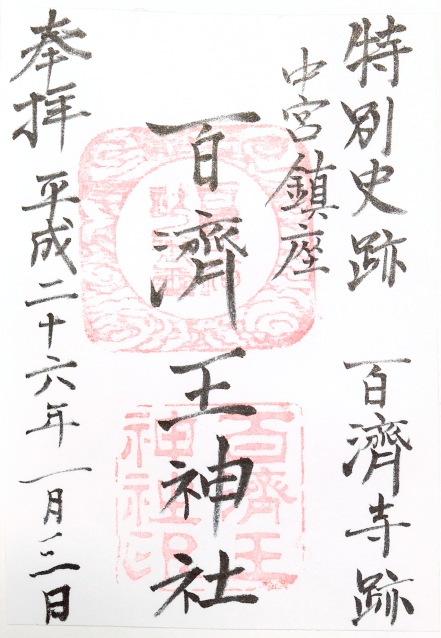 特別史跡 百濟寺跡
中宮鎮座
百濟王神社
奉拝 平成二十六年一月三日
百濟王
神社印